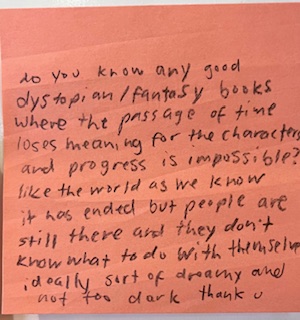 do you know any good
dystopian/fantasy books
where the passage of time
loses meaning for the characters
and progress is impossible?
like the world as we know
it has ended but people are
still there and they don't
know what to do with themselves
ideally sort of dreamy and
not too dark thank u